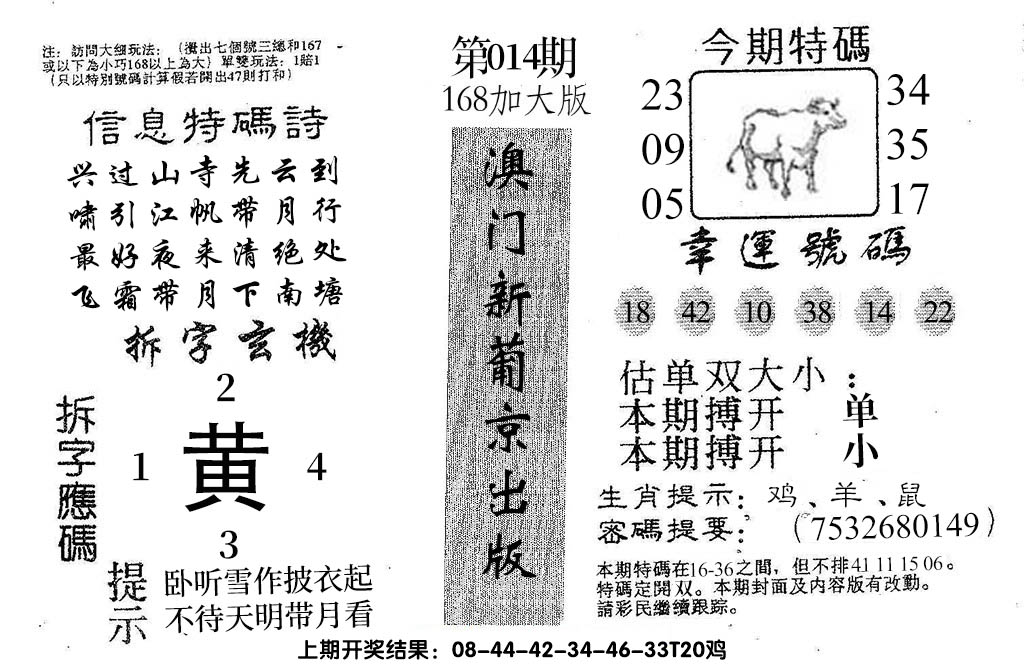 注：訪問大細玩法：（攪出七個號三總和167
或以下為小巧168以上為大）單雙玩法：1賠1
（只以特別號碼計算假若開出47則打和）
信息特碼詩
兴过山寺先云到
啸引江帆带月行
最好夜来清绝处
飞霜带月下南塘
拆字玄機
拆字應碼
2
1 黄 4
3
提示
卧听雪作披衣起
不待天明带月看
第014期
168加大版
澳门新葡京出版
今期特碼
23
09
05
34
35
17
幸運號碼
18 42 10 38 14 22
估单双大小：
本期搏开 单
本期搏开 小
生肖提示：鸡、羊、鼠
密碼提要：（7532680149）
本期特碼在16-36之間，但不排41 11 15 06。
特碼定開双。本期封面及内容版有改動。
請彩民繼續跟踪。
上期开奖结果：08-44-42-34-46-33T20鸡